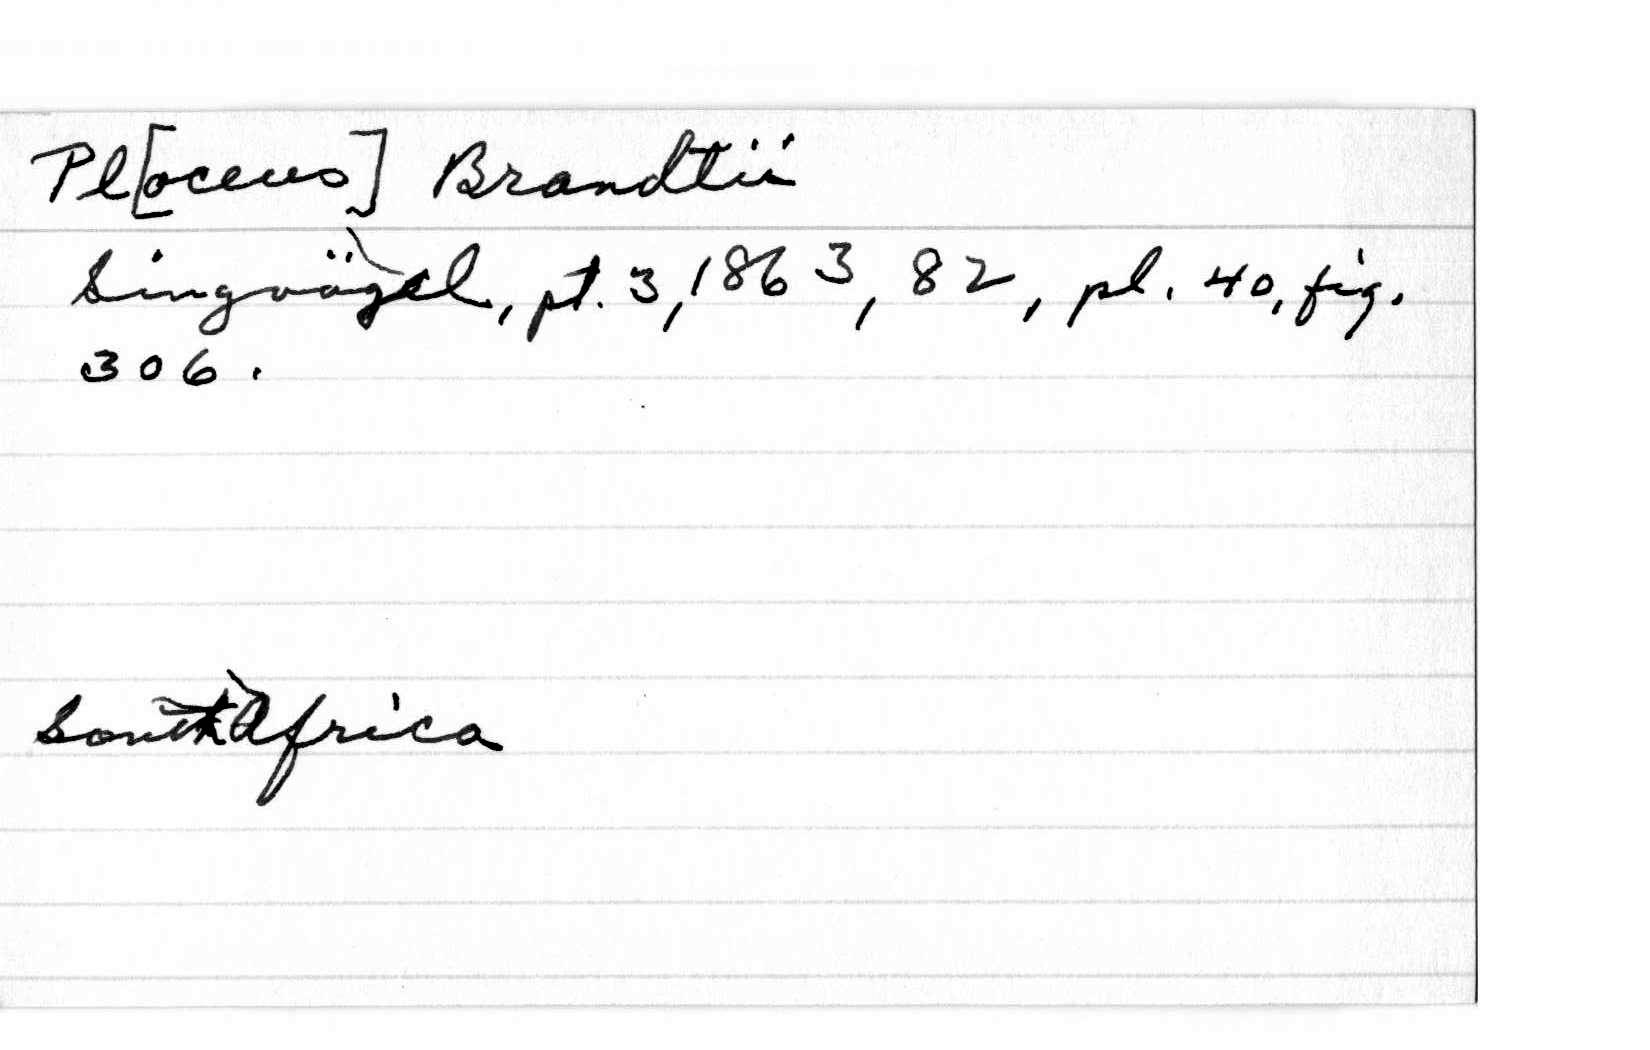 Pl[oceus] Brandtii
Singvögel, pt. 3, 1863, 82, pl. 40, fig.
306.
South Africa